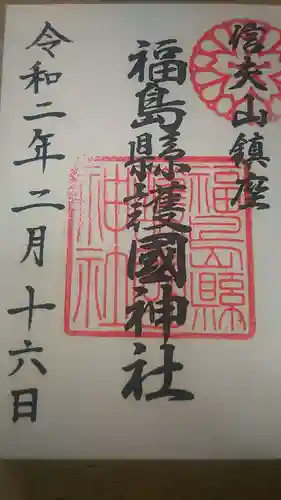 信夫山鎮座
福島縣護國神社
令和二年二月十六日
福島縣
神社